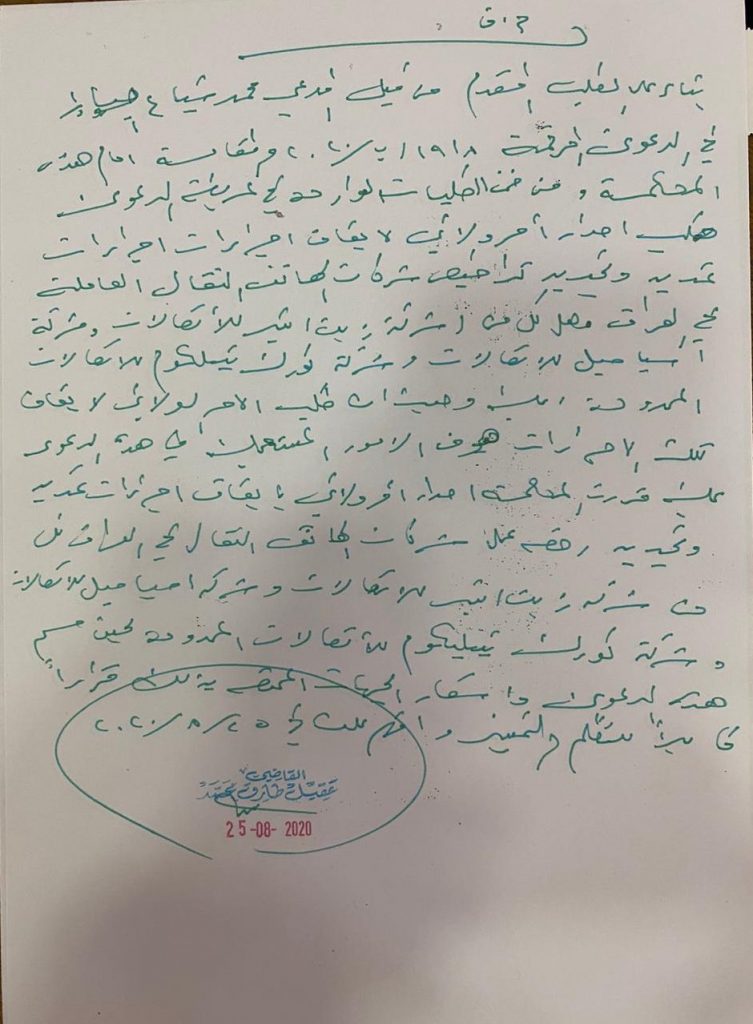 م.ق
بناء على الطلب المقدم من قبل المدعي محمد شياع
في الدعوى المرقمة ١٩١٨ /ب/ ٢٠٢٠ والمقامة امام هذه
المحكمة و من ضمن الطلبات الواردة في عريضة الدعوى
طلب اصدار أمر ولائي لايقاف اجراءات اجراءات
تمديد وتجديد تراخيص شركات الهاتف النقال العاملة
في العراق وهي كل من شركة زين اثير للأتصالات وشركة
اسيا سيل للاتصالات وشركة كورك تيليكوم للاتصالات
المحدودة عليه وحيث ان طلب الامر الولائي لايقاف
تلك الاجراءات هو من الامور المستعجلة في هذه الدعوى
عليه قررت المحكمة اصدار أمر ولائي بايقاف اجراءات تمديد
وتجديد رخصة عمل شركات الهاتف النقال في العراق كل
من شركة زين اثير للاتصالات وشركة اسيا سيل للاتصالات
وشركة كورك تيليكوم للأتصالات المحدودة لحين حسم
هذه الدعوى واشعار الجهات المختصة بذلك قراراً
قابلاً للتظلم والتمييز وافهم علنا في ٢٥/ ٨/ ٢٠٢٠
القاضي
عقيل طارق محمد
25-08-2020